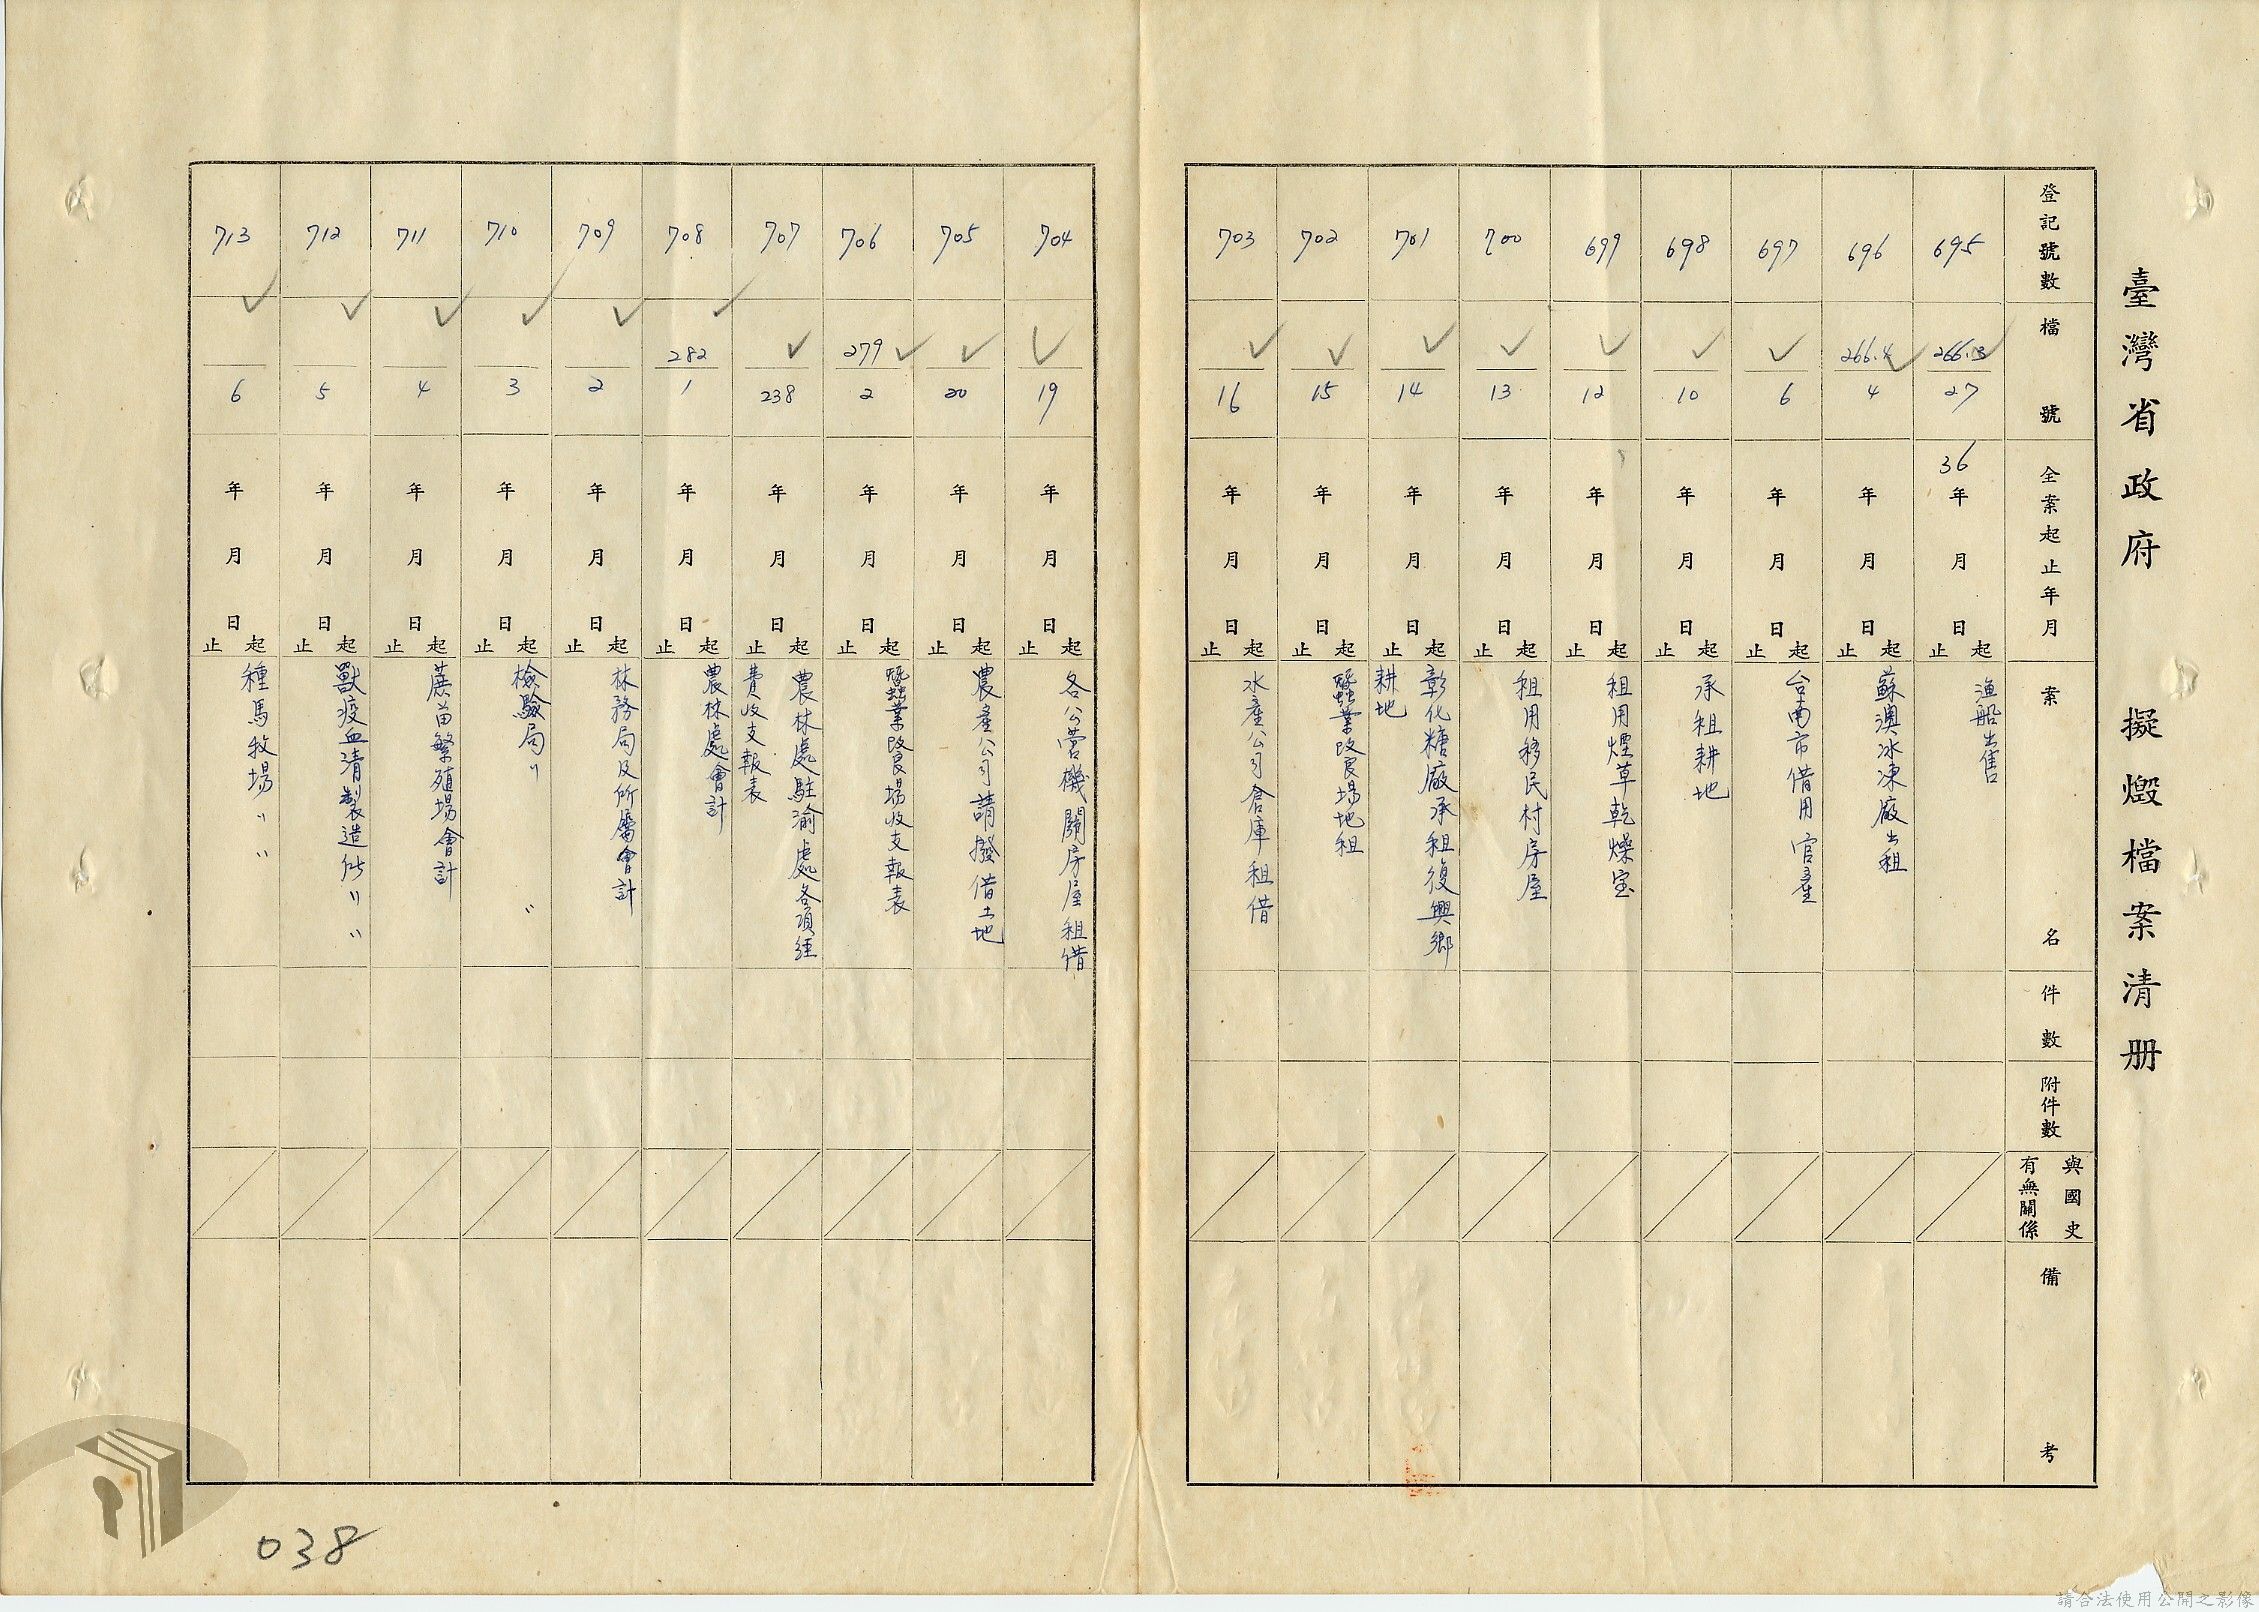 臺灣省政府　擬燬檔案清册
登記號數
檔號
全案起止年月
案名
件數
附件數
與國史有無關係
備考
695
266.3
27
36年月日起止
漁船出售
696
266.4
4
年月日起止
蘇澳冰凍廠出租
697
6
年月日起止
台南市借用官產
698
10
年月日起止
承租耕地
699
12
年月日起止
租用煙草乾燥室
700
13
年月日起止
租用移民村房屋
701
14
年月日起止
彰化糖廠承租復興鄉
耕地
702
15
年月日起止
蠶業改良場地租
703
16
年月日起止
水產公司倉庫租借
704
19
年月日起止
各公營機關房屋租借
705
20
年月日起止
農產公司請撥借土地
706
279
2
年月日起止
蠶業改良場收支報表
707
238
年月日起止
農林處駐渝處各項經
費收支報表
708
282
1
年月日起止
農林處會計
709
2
年月日起止
林務局及所屬會計
710
3
年月日起止
檢驗局〃〃
711
4
年月日起止
蔗苗繁殖場會計
712
5
年月日起止
獸疫血清製造所〃〃
713
6
年月日起止
種馬牧場〃〃
038
請合法使用公開之影像